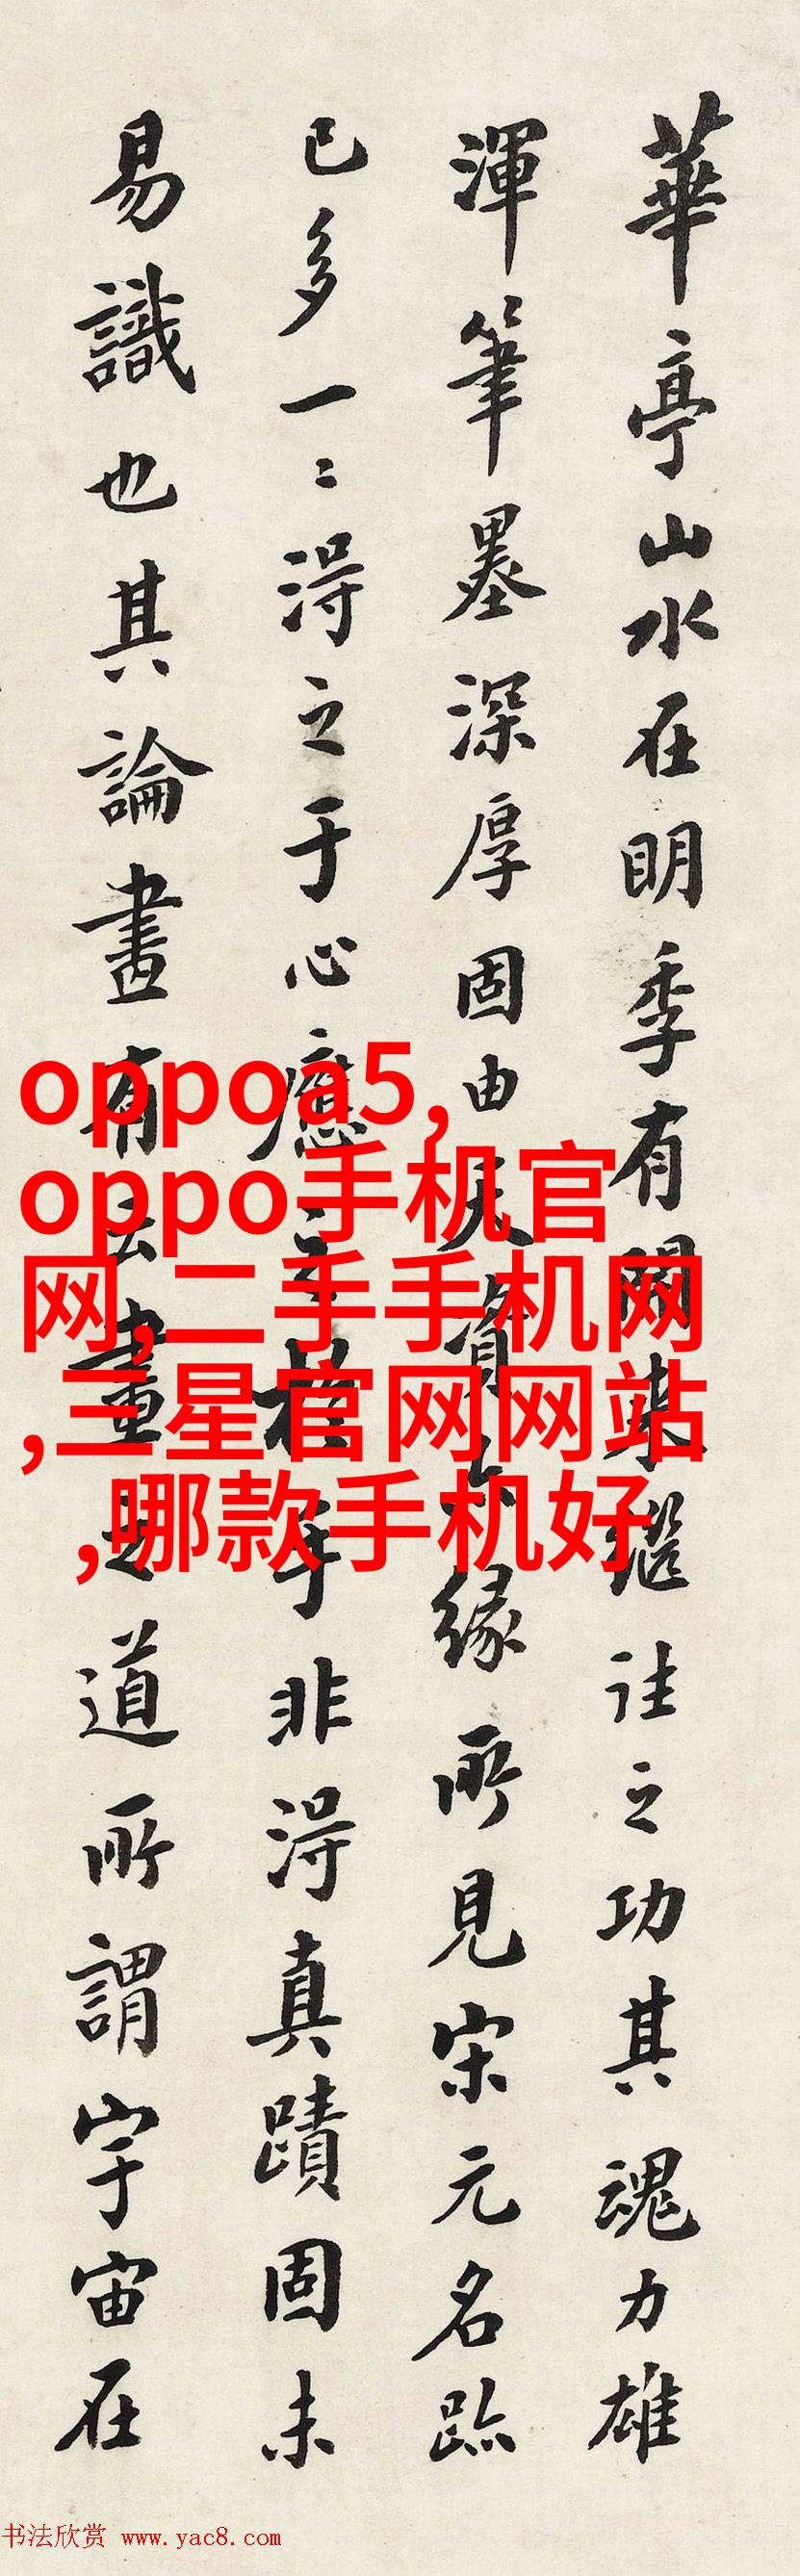 華亭山水在明季有開来繼往之功其魂力雄
渾筆墨深厚固由天資亦緣所見宋元名跡
已多一二得之于心應之於手非得真蹟固未
易識也其論畫有云畫之道所謂宇宙在
oppoa5,
oppo手机官
网,二手手机网
,三星官网网站
,哪款手机好
书法欣赏 www.yac8.com